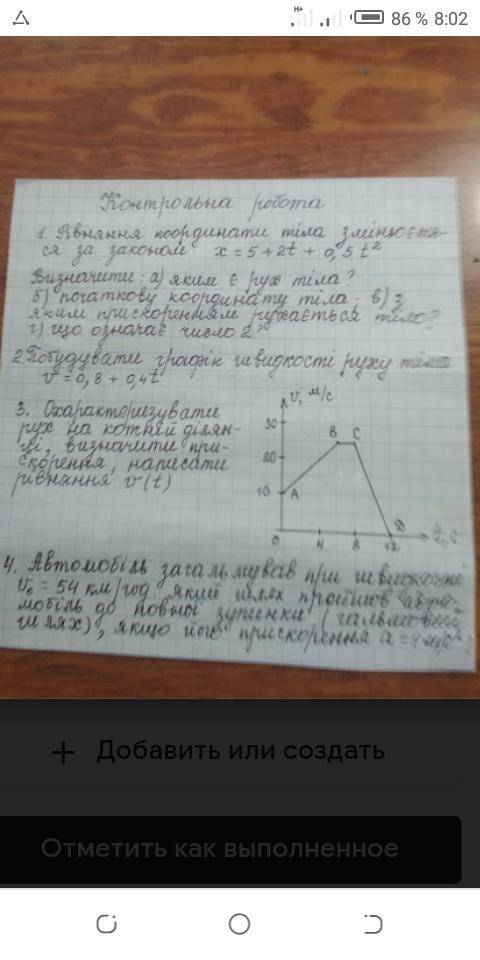 H+ 86 % 8:02
Контрольна робота
1. Рівняння координати тіла змінюєть-
ся за законом x = 5 + 2t + 0,5t²
Визначити: а) яким є рух тіла?
б) початкову координату тіла; в) з
яким прискоренням рухається тіло?
г) що означає число 2?
2. Побудувати графік швидкості руху тіла
v = 0,8 + 0,4t
3. Охарактеризувати
рух на кожній ділян-
ці, визначити при-
скорення, написати
рівняння v(t)
v, м/с
30
20
10
0
4
8
12
A
B
C
D
t, c
4. Автомобіль загальмував при швидкості
v₀ = 54 км/год. який шлях пройшов авто-
мобіль до повної зупинки (гальмовий
шлях), якщо його прискорення a = 4 м/с²?
Добавить или создать
Отметить как выполненное